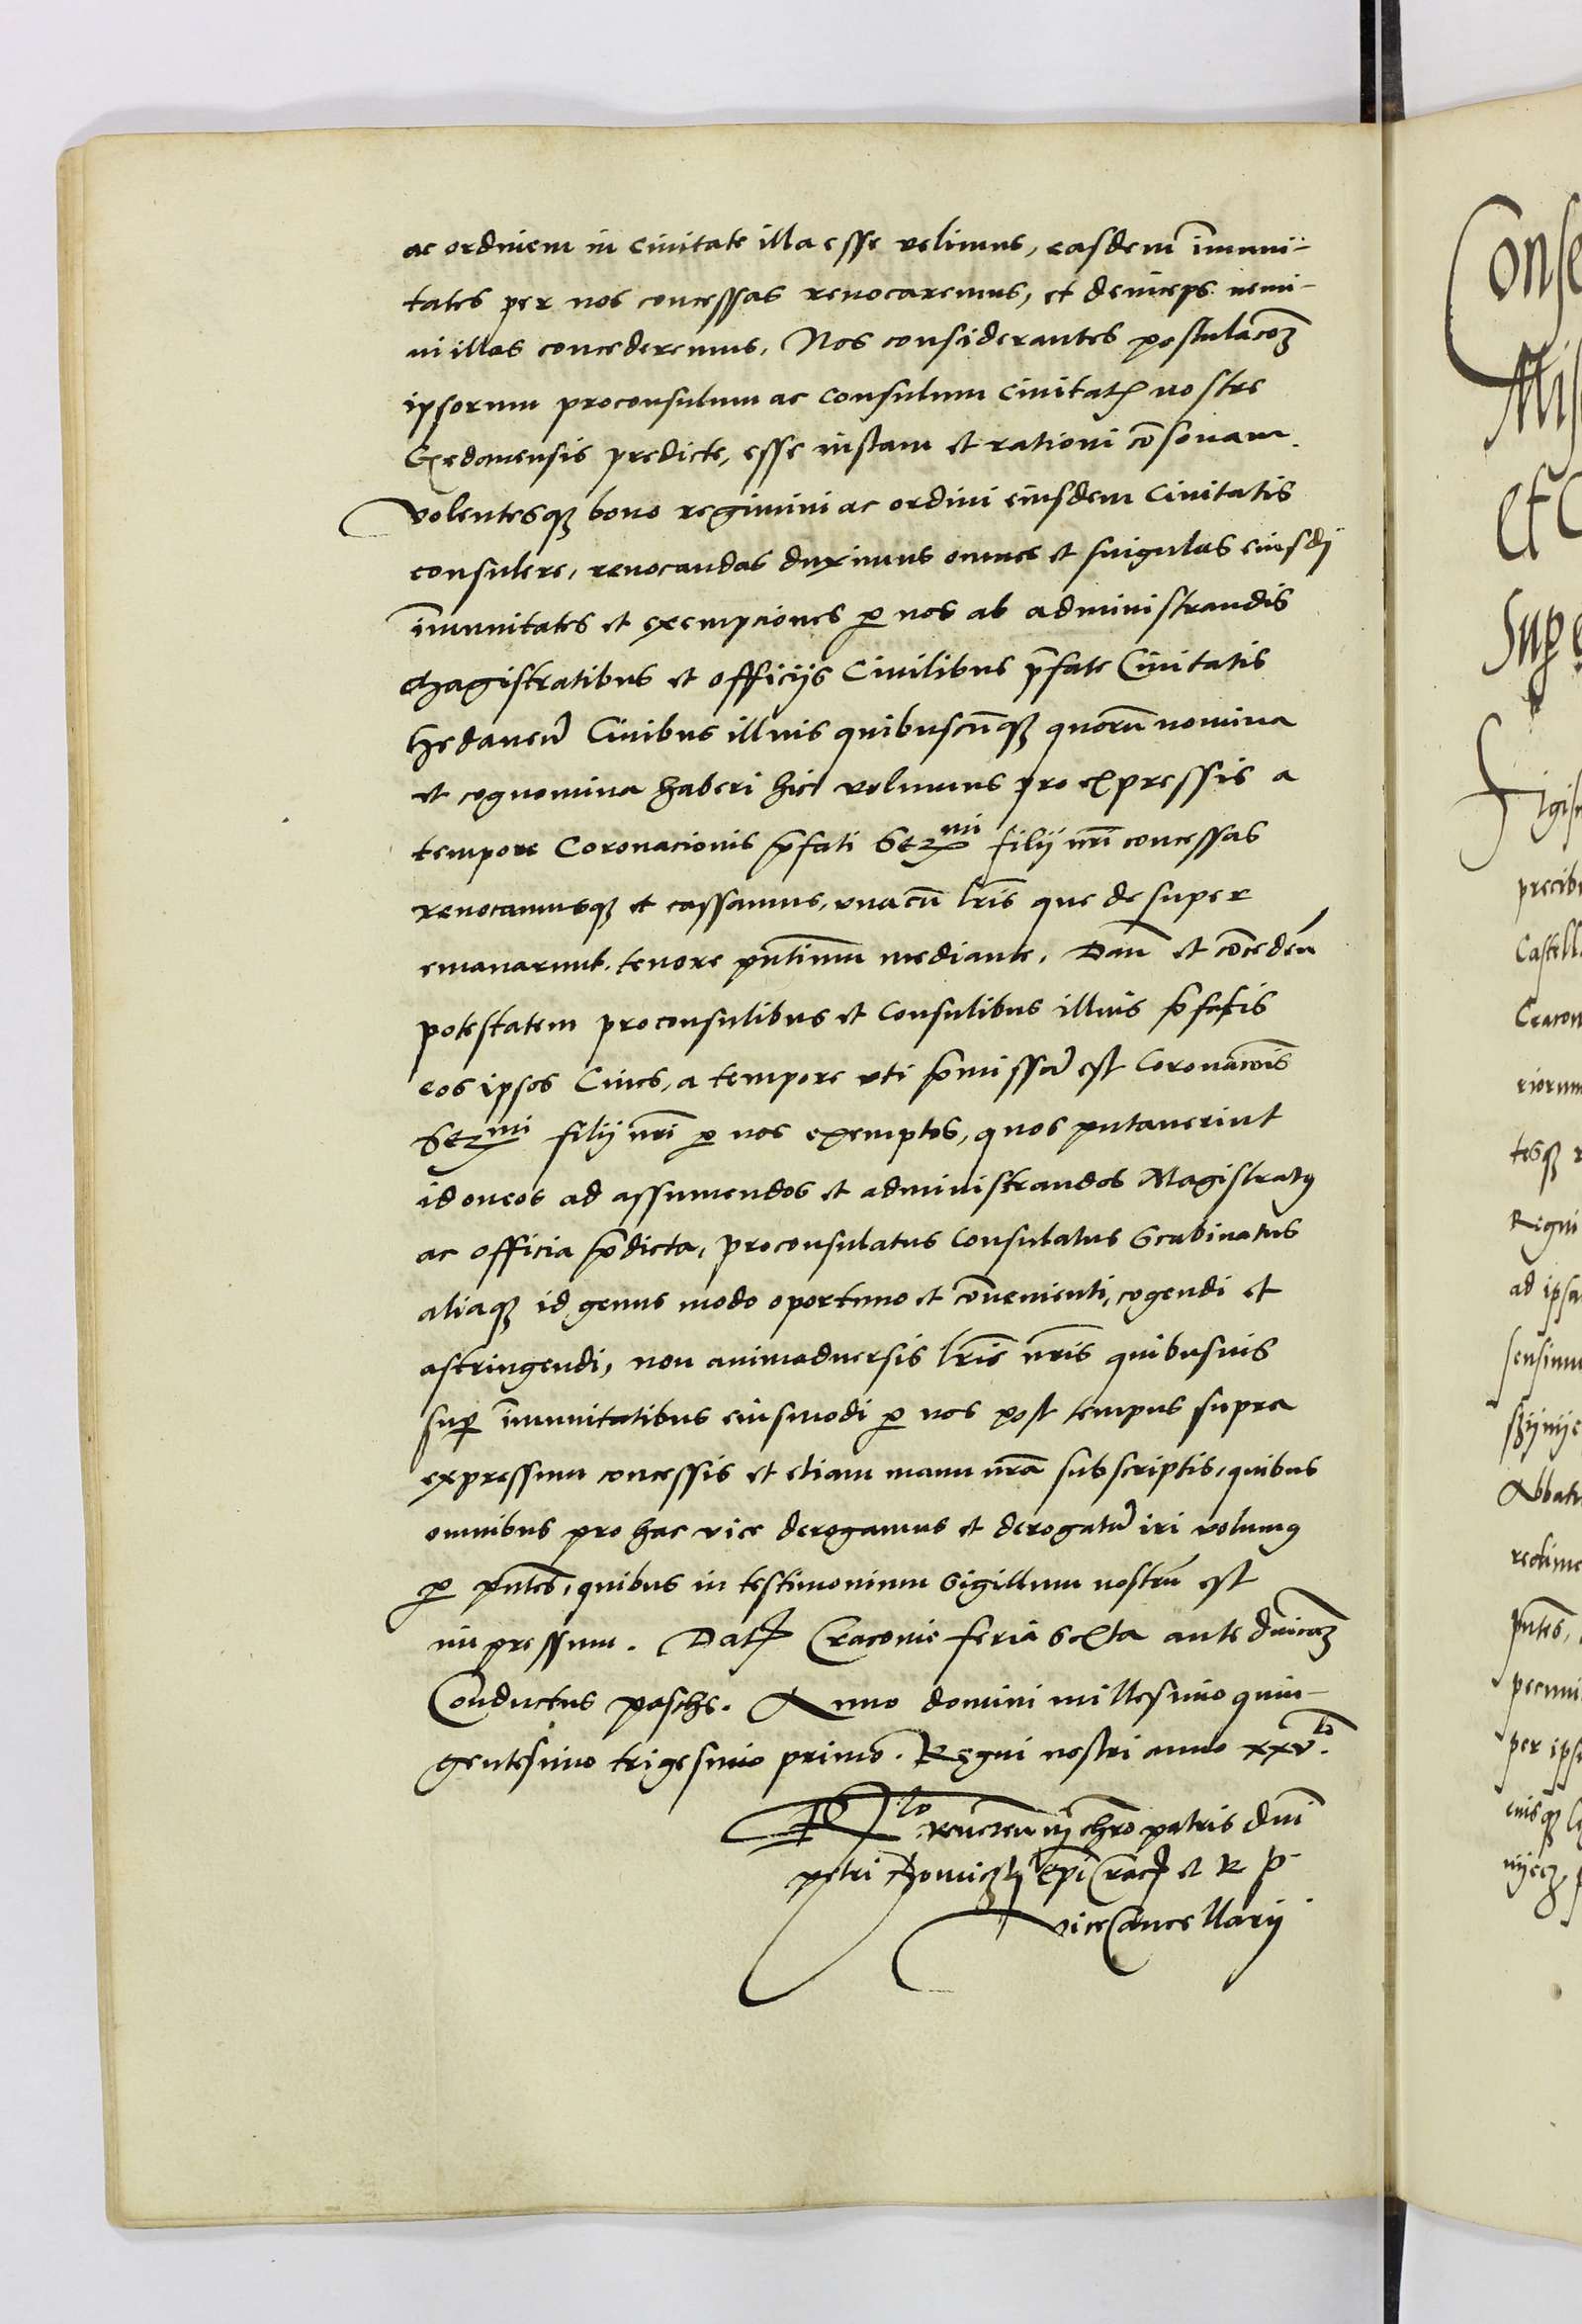 ac ordinem in civitate illa esse velimus, easdem im̄uni-
tates per nos concessas revocaremus, et deinceps nemi-
ni illas concederemus. Nos considerantes postulac̄oꝫ
ipsorum proconsulum ac consulum civitatꝭ nostre
Gedanensis predicte, esse iustam et rationi cōsonam.
volentesqꝫ bono regimini ac ordini eiusdem Civitatis
consulere, revocandas duximus omnes et singulas eiusdi
im̄unitates et exempciones ꝑ nos ab administrandis
Magistratibus et officijs Civilibus p̄fate Civitatis
Gedaneñ Civibus illius quibuscūqꝫ quorū nomina
et cognomina haberi hic volumus pro expressis a
tempore Coronacionis p̄fati Serᵐⁱ filij nr̄i concessas
revocamusqꝫ et cassamus, una cū lr̄is que desuper
emanarunt, tenore pn̄tium mediante. Dañ et cōcedeñ
potestatem proconsulibus et Consulibus illius p̄fatis
eos ipsos Cives, a tempore uti p̄missū est Coronac̄ois
Serᵐⁱ filij nr̄i ꝑ nos exemptos, quos putaverint
idoneos ad assumendos et administrandos Magistratꝰ
ac officia p̄dicta, proconsulatus Consulatus Scabinatus
aliaqꝫ id genus modo oportuno et cōvenienti, cogendi et
astringendi, non animadversis lr̄is nr̄is quibusvis
suꝑ im̄unitatibus eiusmodi ꝑ nos post tempus supra
expressum concessis et etiam manu nr̄a subscriptis, quibus
omnibus pro hac vice derogamus et derogatū iri volumꝰ
ꝑ pn̄tes, quibus in testimonium Sigillum nostrū est
impressum. Datꝭ Cracovie feria Sexta ante dn̄icaꝫ
Conductus pasche. Anno domini millesimo quin-
gentesimo trigesimo primo. Regni nostri anno xxv.ᵗᵒ
Rͨˡᵒ Reverēn in chr̄o patris dn̄i
petri Thomiczkij Ep̄i Cracꝭ et R P
vice Cancellarij
Conse
Mis
et C
Suꝑ
Sigis
precib
Castell
Cracov
riorum
tesqꝫ
Regni
ad ipsa
sensimu
Abbat
redime
pn̄tes,
pecuni
per ips